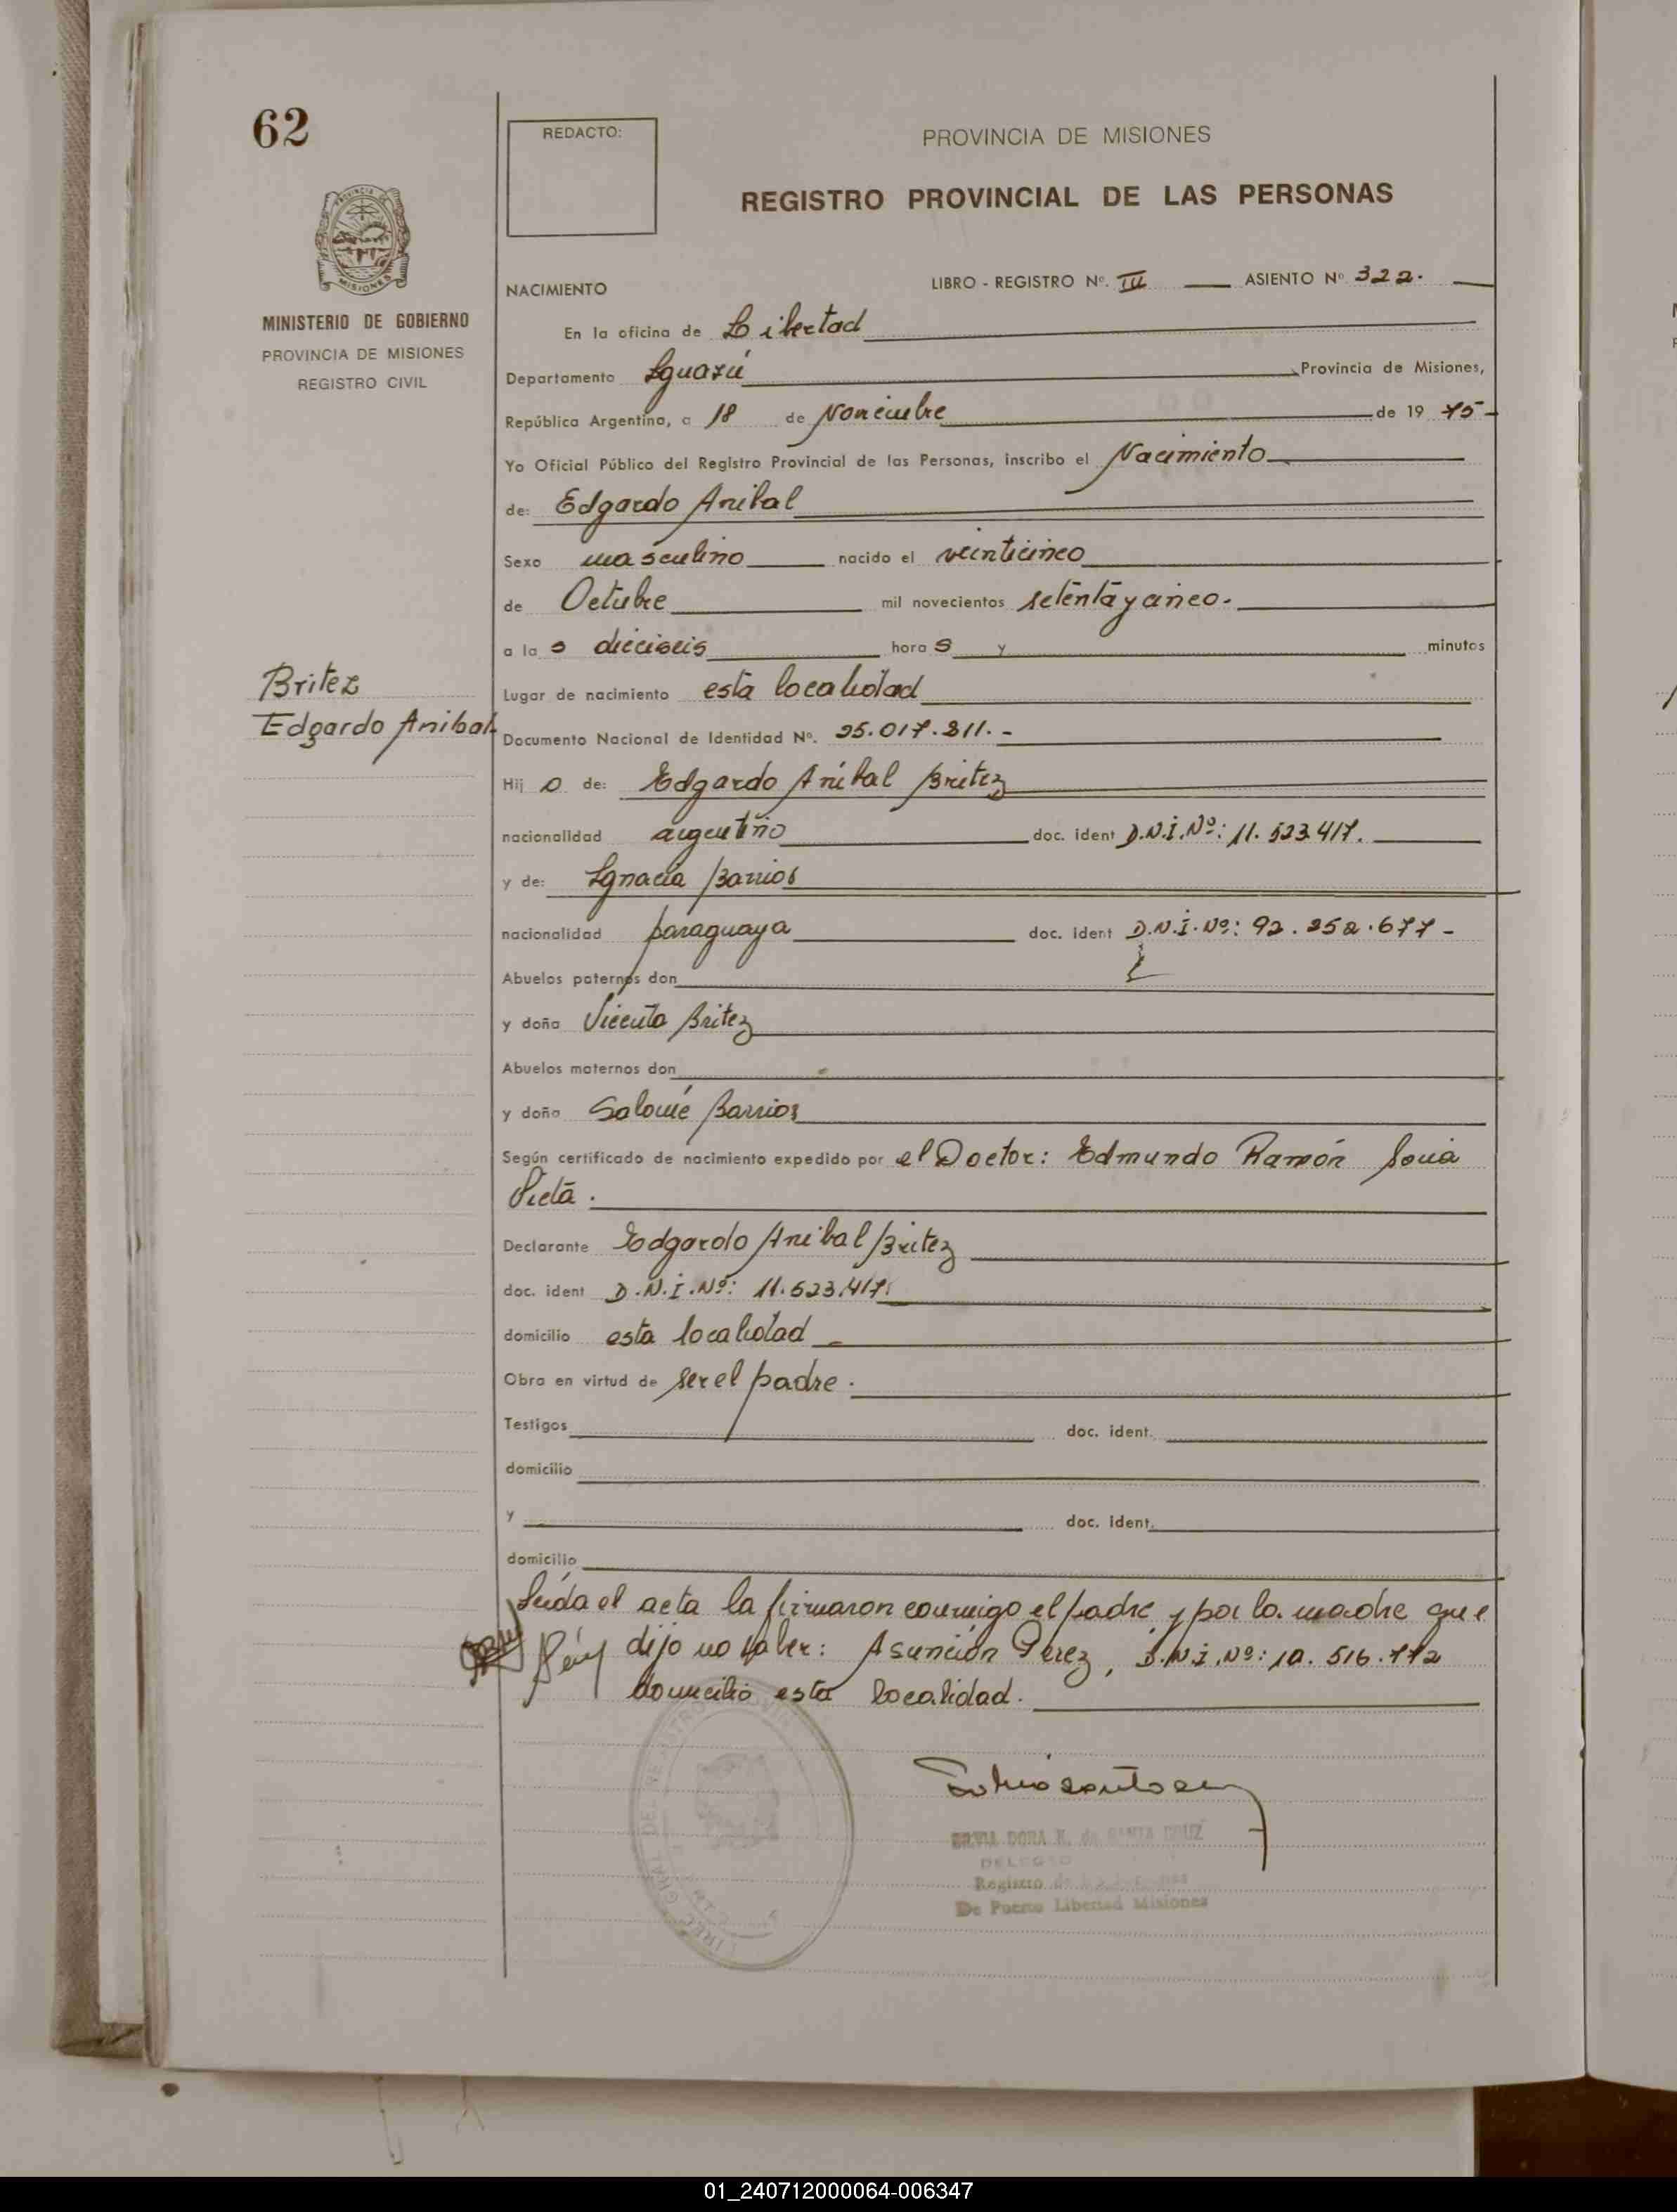 62
REDACTO:
PROVINCIA DE MISIONES
REGISTRO PROVINCIAL DE LAS PERSONAS
PROVINCIA DE
MISIONES
MINISTERIO DE GOBIERNO
PROVINCIA DE MISIONES
REGISTRO CIVIL
NACIMIENTO LIBRO - REGISTRO Nº. III ASIENTO Nº 322.
En la oficina de Libertad
Departamento Iguazú Provincia de Misiones,
República Argentina, a 18 de Noviembre de 19 75-
Yo Oficial Público del Registro Provincial de las Personas, inscribo el Nacimiento
de: Edgardo Anibal
Sexo masculino nacido el veinticinco
de Octubre mil novecientos setenta y cinco.
a la s dieciseis hora s y minutos
Britez
Edgardo Anibal-
Lugar de nacimiento esta localidad
Documento Nacional de Identidad Nº. 25.017.211.-
Hij o de: Edgardo Aníbal Britez
nacionalidad argentino doc. ident D.N.I.Nº: 11.523.417.
y de: Ignacia Barrios
nacionalidad paraguaya doc. ident D.N.I.Nº: 92.252.677-
Abuelos paternos don
y doña Vicenta Britez
Abuelos maternos don
y doña Salomé Barrios
Según certificado de nacimiento expedido por el Doctor: Edmundo Ramón Soria
Vieta.
Declarante Edgardo Anibal Britez
doc. ident D.N.I.Nº: 11.523.417.
domicilio esta localidad
Obra en virtud de ser el padre.
Testigos doc. ident.
domicilio
y doc. ident.
domicilio
Leída el acta la firmaron conmigo el padre y por la madre que
dijo no saber: Asunción Perez, D.N.I.Nº: 10.516.772
domicilio esta localidad.
DORA de SANTA CRUZ
Registro
De Puerto Libertad Misiones
01_240712000064-006347